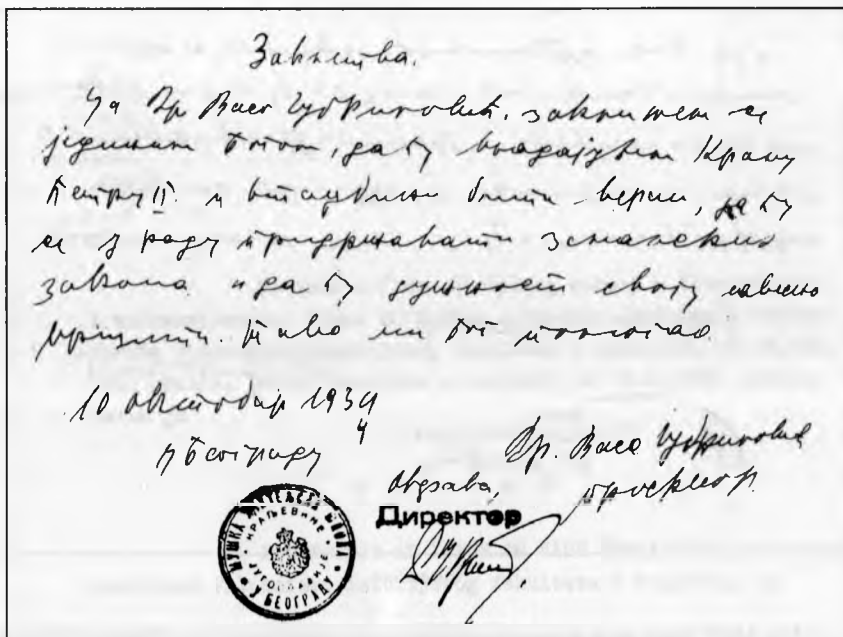 Заклетва.
Ја Др Васо Чубриловић, заклињем се
једином Богом, да ћу владајућем Краљу
Петру II. и отаџбини бити веран, да ћу
се у раду придржавати земаљских
закона и да ћу дужност своју савесно
вршити. Тако ми Бог помогао.
10 октобар 1934
4
у Београду
Др. Васо Чубриловић
професор.
Оверава,
Директор
МУШКА УЧИТЕЉСКА ШКОЛА
КРАЉЕВИНЕ ЈУГОСЛАВИЈЕ
У БЕОГРАДУ